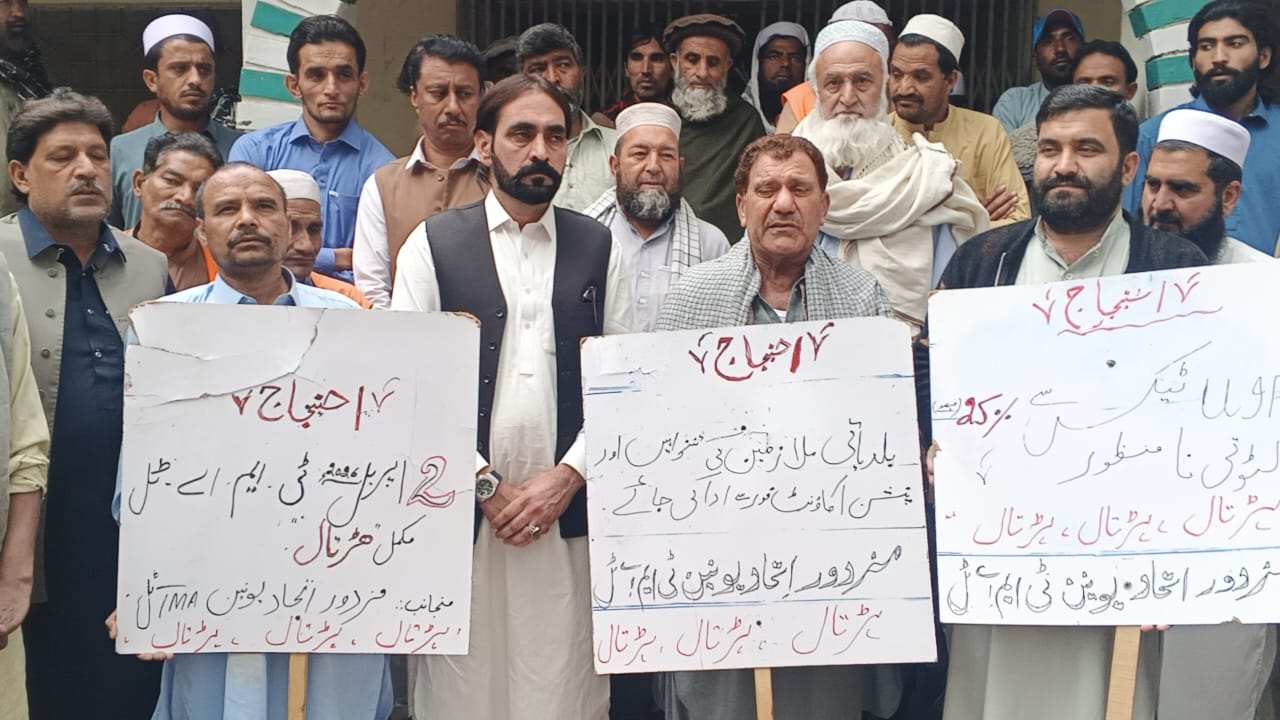 احتجاج
2 اپریل 2026 ٹی ایم اے ٹل
مکمل "ھڑتال"
منجانب:۔ مزدور اتحاد یونین TMA ٹل
ہڑتال ، ہڑتال ، ہڑتال
احتجاج
بلدیاتی ملازمین کی تنخواہیں اور
پنشن اکاؤنٹ فورسے ادا کی جائے۔
مزدور اتحاد یونین ٹی ایم اے ٹل
ہڑتال ، ہڑتال ، ہڑتال
احتجاج
ٹیکس سے 2%
کٹوتی نا منظور
ہڑتال ، ہڑتال ، ہڑتال
مزدور اتحاد یونین ٹی ایم اے ٹل